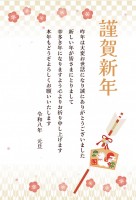 謹賀新年
昨年は大変お世話になり誠にありがとうございました
新しい年が皆さまにとりまして
幸多き年になりますよう心よりお祈り申し上げます
本年もどうぞよろしくお願いいたします
令和八年 元旦